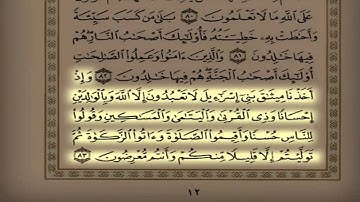 عَلَى ٱللَّهِ مَا لَا تَعْلَمُونَ ٨٠ بَلَىٰ مَن كَسَبَ سَيِّئَةً
وَأَحَٰطَتْ بِهِۦ خَطِيٓـَٔتُهُۥ فَأُو۟لَٰٓئِكَ أَصْحَٰبُ ٱلنَّارِ هُمْ
فِيهَا خَٰلِدُونَ ٨١ وَٱلَّذِينَ ءَامَنُوا۟ وَعَمِلُوا۟ ٱلصَّٰلِحَٰتِ
أُو۟لَٰٓئِكَ أَصْحَٰبُ ٱلْجَنَّةِ هُمْ فِيهَا خَٰلِدُونَ ٨٢ وَإِذْ
أَخَذْنَا مِيثَٰقَ بَنِىٓ إِسْرَٰٓءِيلَ لَا تَعْبُدُونَ إِلَّا ٱللَّهَ وَبِٱلْوَٰلِدَيْنِ
إِحْسَانًا وَذِى ٱلْقُرْبَىٰ وَٱلْيَتَٰمَىٰ وَٱلْمَسَٰكِينِ وَقُولُوا۟
لِلنَّاسِ حُسْنًا وَأَقِيمُوا۟ ٱلصَّلَوٰةَ وَءَاتُوا۟ ٱلزَّكَوٰةَ ثُمَّ
تَوَلَّيْتُمْ إِلَّا قَلِيلًا مِّنكُمْ وَأَنتُم مُّعْرِضُونَ ٨٣
١٢